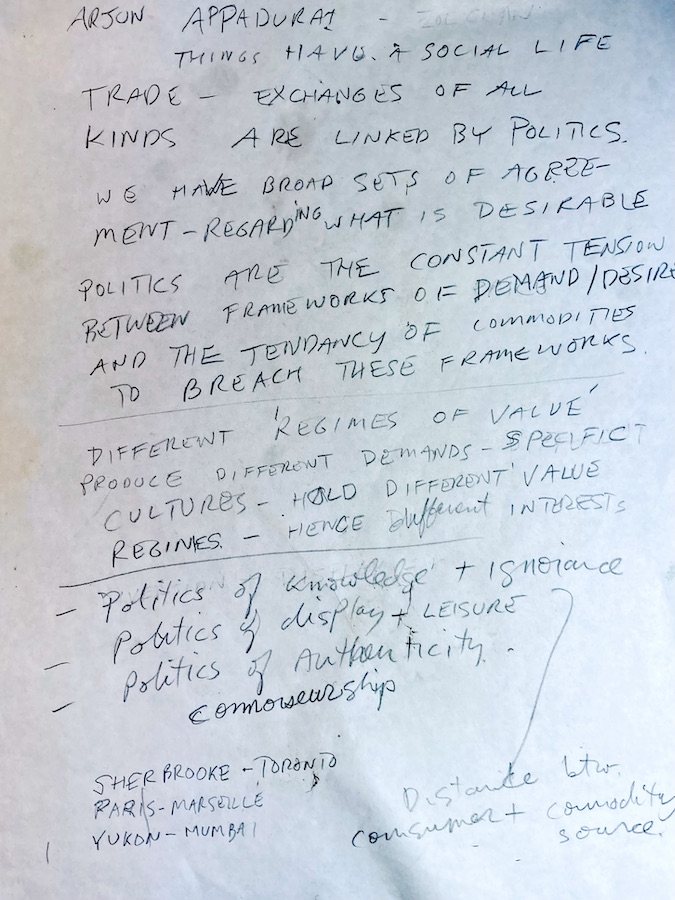 ARJUN APPADURAI -
THINGS HAVE A SOCIAL LIFE
TRADE - EXCHANGES OF ALL
KINDS ARE LINKED BY POLITICS.
WE HAVE BROAD SETS OF AGREE-
MENT - REGARDING WHAT IS DESIRABLE
POLITICS ARE THE CONSTANT TENSION
BETWEEN FRAMEWORKS OF DEMAND/DESIRE
AND THE TENDANCY OF COMMODITIES
TO BREACH THESE FRAMEWORKS.
DIFFERENT 'REGIMES OF VALUE'
PRODUCE DIFFERENT DEMANDS - SPECIFICT
CULTURES - HOLD DIFFERENT VALUE
REGIMES. - HENCE Different INTERESTS
- Politics of knowledge + ignorance
- Politics of display + LEISURE
- Politics of Authenticity.
connoiseurship
SHERBROOKE - TORONTO
PARIS - MARSEILLE
YUKON - MUMBAI
Distance btw.
consumer + commodity
source.